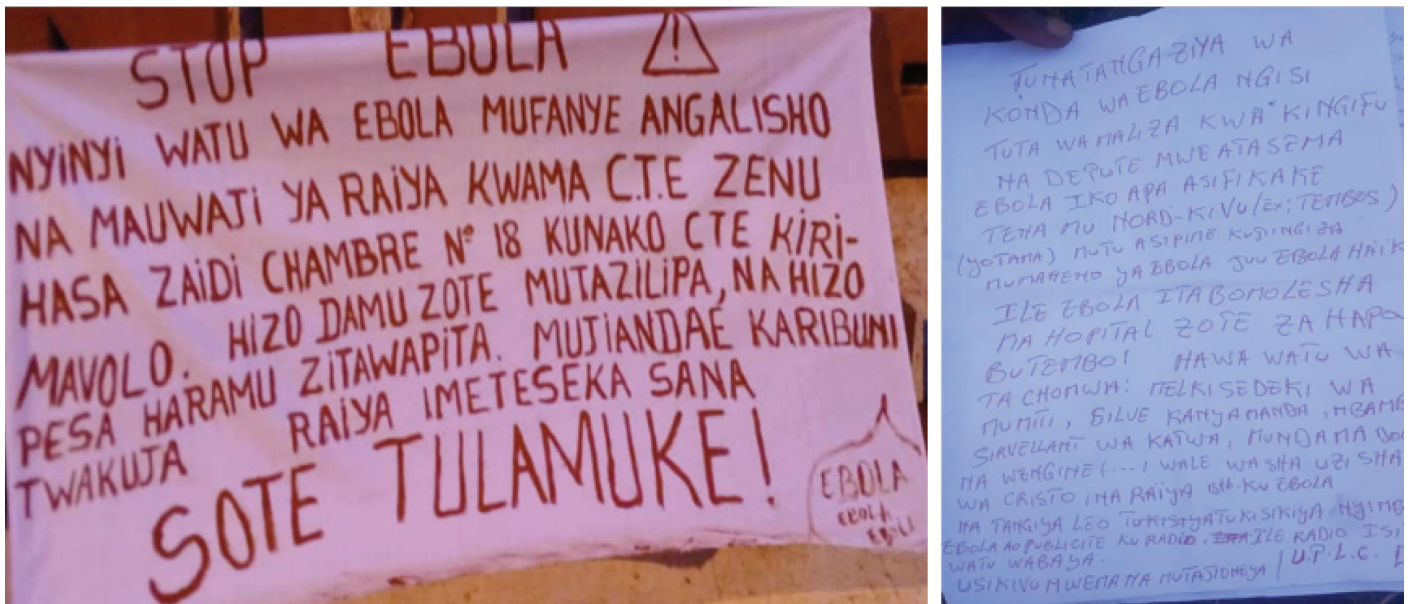 STOP EBOLA
NYiNYi WATU WA EBOLA MUFANYE ANGALISHO
NA MAUWAJi YA RAiYA KWAMA C.T.E ZENU
HASA ZAiDi CHAMBRE N° 18 KUNAKO CTE KiRi-
MAVOLO. HiZO DAMU ZOTE MUTAZiLiPA, NA HiZO
PESA HARAMU ZiTAWAPiTA. MUJiANDAE KARiBUNi
TWAKUJA RAiYA IMETESEKA SANA
SOTE TULAMUKE!
EBOLA
EBOLA
EBOLA
TUNATANGAZIYA WA
KONDA WA EBOLA NGISI
TUTA WAMALIZA KWA KINGIFU
NA DEPUTE MWE ATASEMA
EBOLA IKO APA ASIFIKAKE
TENA MU NORD-KIVU/EX: TEMBOS)
(YOTAMA) MUTU ASIPIME KUJIINGIZA
MUMANENO YA EBOLA JUU EBOLA HAIK
ILE EBOLA ITABOMOLESHA
MA HOPITAL ZOTE ZA HAPO
BUTEMBO! HAWA WATU WA
TA CHOMWA: MELKISEDEKI WA
MUMITI, SILVE KANYAMANDA, MBAMB
SIRVELLANT WA KATWA, MUNDAMA BO
NA WENGINE (...) WALE WASHA UZISHA
WA CRISTO, NA RAIYA KU EBOLA
NA TANGIYA LEO TUKISIKIYA NYIMB
EBOLA AO PUBLICITE KU RADIO, ILE RADIO ISI
WATU WABAYA.
USIKIVU MWEMA NA MUTAJIONEYA / U.P.L.C.